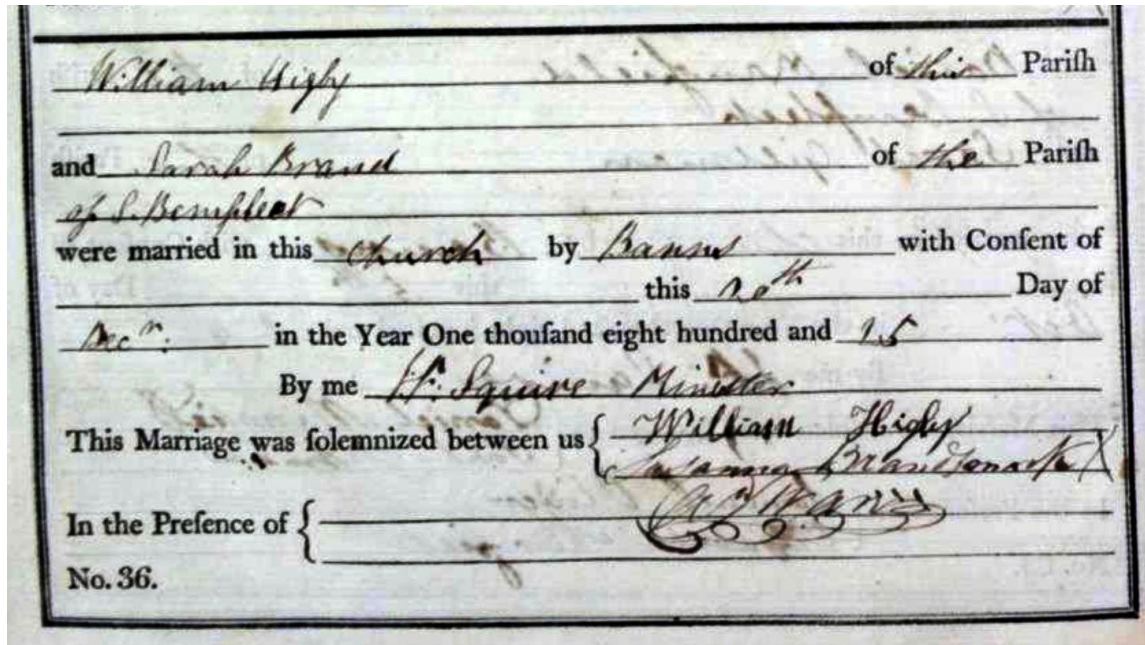 William Higby of this Pariſh
and Sarah Brand of the Pariſh
of S. Bemfleet
were married in this Church by Banns with Conſent of
this 20th Day of
Decr. in the Year One thouſand eight hundred and 15
By me Hy. Squire Minister
This Marriage was ſolemnized between us { William Higby
Susanna Brands mark X
In the Preſence of {
No. 36.